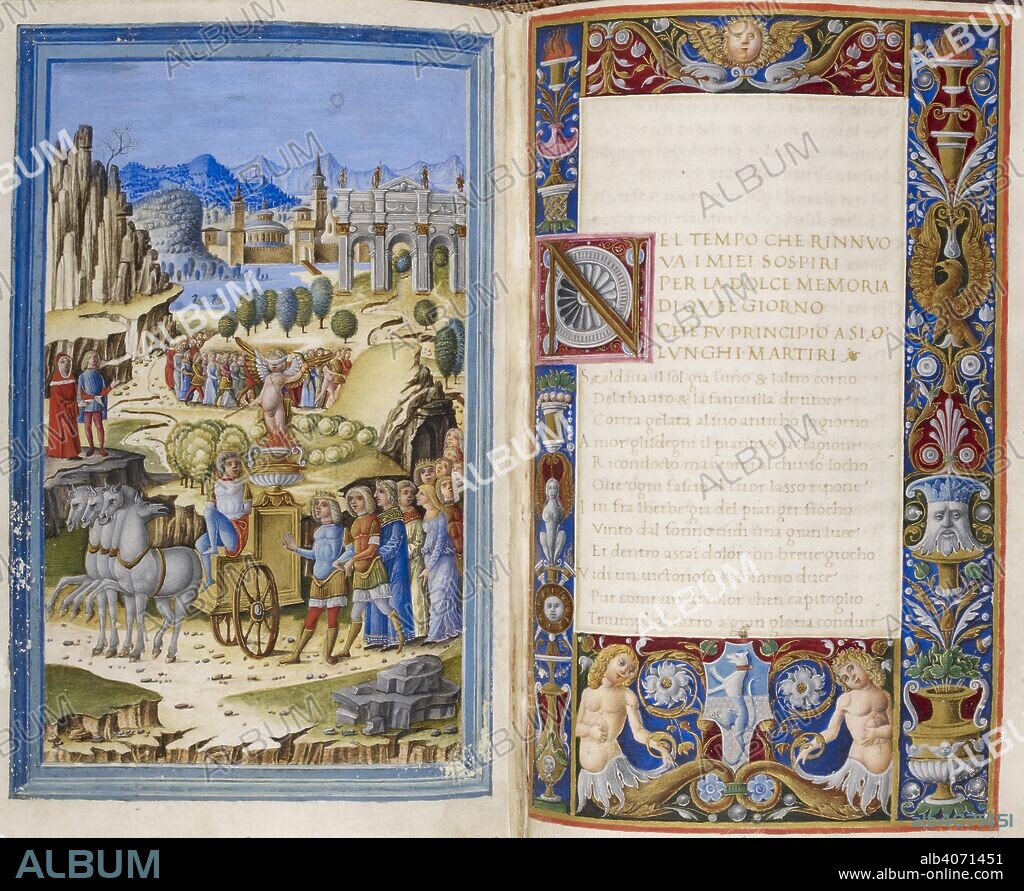 NEL TEMPO CHE RINNVO
VA I MIEI SOSPIRI
PER LA DOLCE MEMORIA
DI QVEL GIORNO
CHE FV PRINCIPIO A SI
LVNGHI MARTIRI
Scaldaua il sol gia luno & laltro corno
Del thauro & la fanciulla de titone
Correa gelata al suo anticho giorno
Amor gli sdegni il pianto & la stagione
Ricondocto maueano al chiuso locho
Oue ogni fascio il cuor lasso ripone
Iui fra lherbe gia del pianger fiocho
Vinto dal sonno uidi una gran luce
Et dentro assai dolor con breue giocho
Vidi un uictorioso & sommo duce
Pur come un di color chen capitoglio
Triumphal carro a gran gloria conduce
ALBUM
alb4071451
ALBUM
www.album-online.com